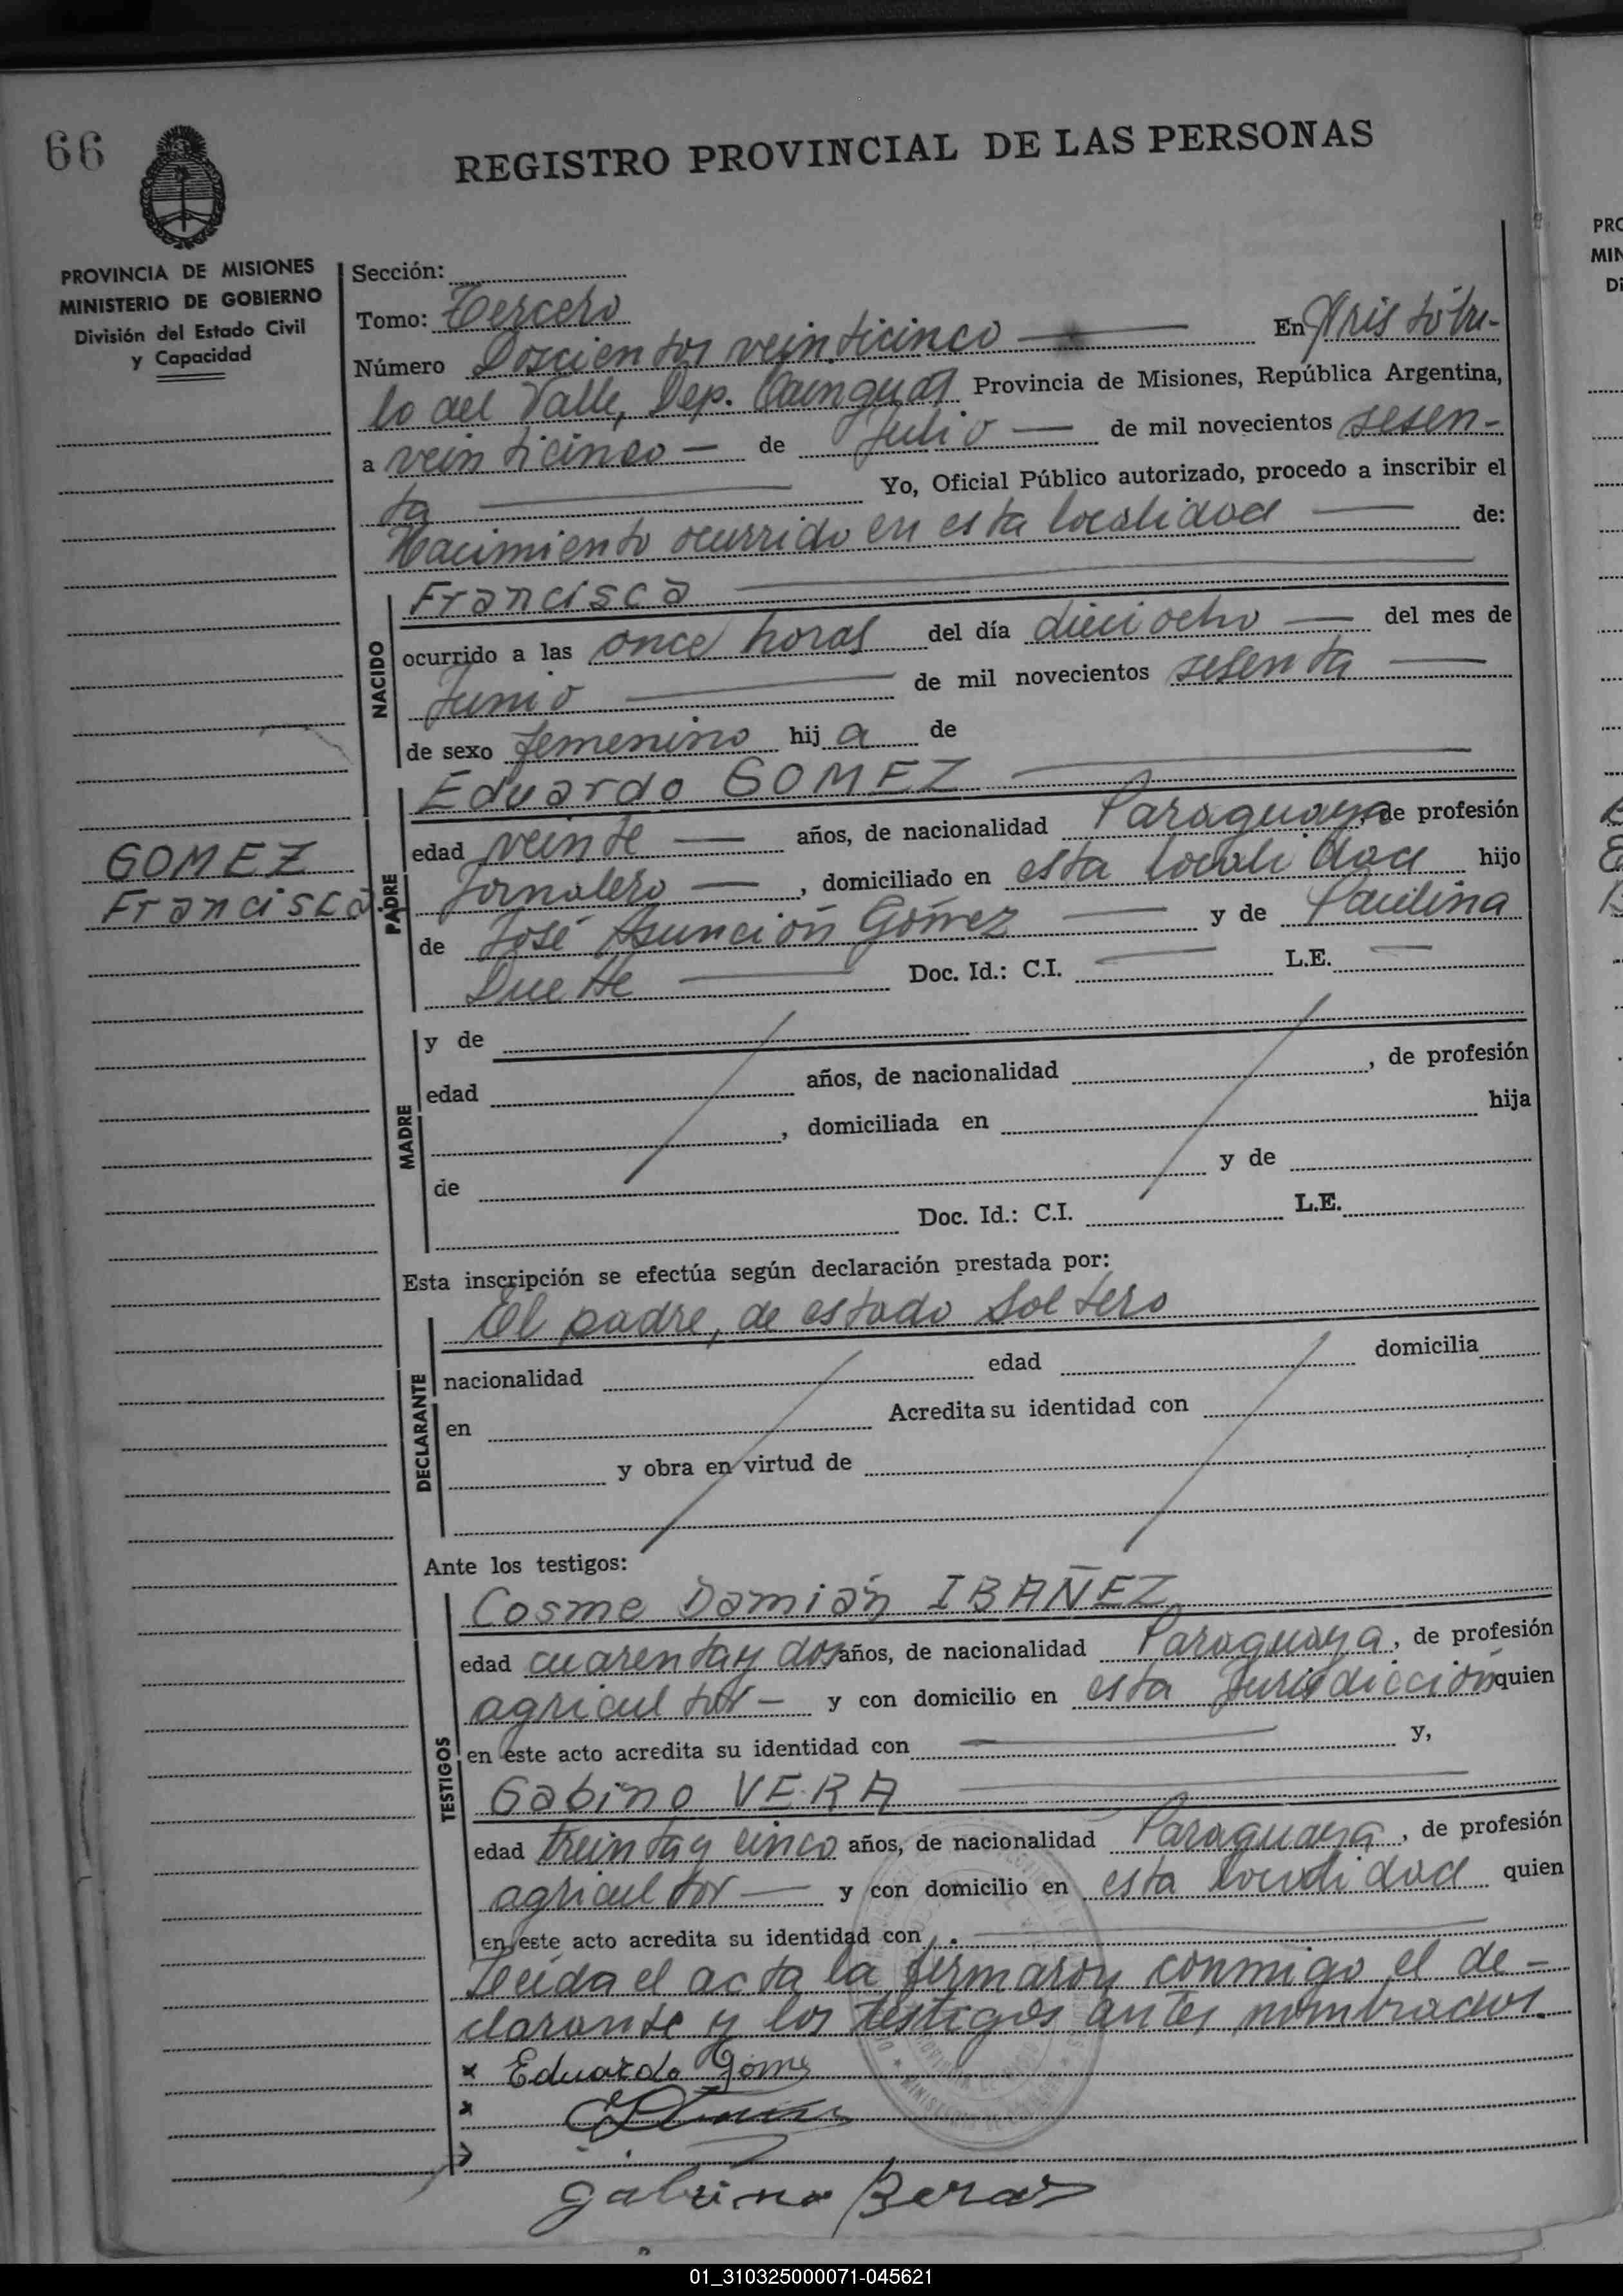 66
REGISTRO PROVINCIAL DE LAS PERSONAS
PROVINCIA DE MISIONES
MINISTERIO DE GOBIERNO
División del Estado Civil
y Capacidad
Sección:
Tomo: Tercero
Número Doscientos veinticinco — En Aristóbu-
lo del Valle, Dep. Cainguás Provincia de Misiones, República Argentina,
a veinticinco — de Julio — de mil novecientos sesen-
ta — Yo, Oficial Público autorizado, procedo a inscribir el
Nacimiento ocurrido en esta localidad — de:
NACIDO
Francisca —
ocurrido a las once horas del día dieciocho — del mes de
Junio — de mil novecientos sesenta —
de sexo femenino hij a de
GOMEZ
Francisca
PADRE
Eduardo GOMEZ —
edad veinte — años, de nacionalidad Paraguaya, de profesión
Jornalero —, domiciliado en esta localidad hijo
de José Asunción Gómez — y de Paulina
Duette — Doc. Id.: C.I. — L.E. —
MADRE
y de
edad años, de nacionalidad , de profesión
, domiciliada en hija
de y de
Doc. Id.: C.I. L.E.
Esta inscripción se efectúa según declaración prestada por:
DECLARANTE
El padre, de estado soltero
nacionalidad edad domicilia
en Acredita su identidad con
y obra en virtud de
Ante los testigos:
TESTIGOS
Cosme Damián IBAÑEZ
edad cuarenta y dos años, de nacionalidad Paraguaya, de profesión
agricultor — y con domicilio en esta Jurisdicción quien
en este acto acredita su identidad con — y,
Gabino VERA —
edad treinta y cinco años, de nacionalidad Paraguaya, de profesión
agricultor — y con domicilio en esta localidad quien
en este acto acredita su identidad con . —
Leída el acta la firmaron conmigo el de-
clarante y los testigos antes nombrados.
x Eduardo Gomez
x
Gabino Beras
PRO
MIN
Di
01_310325000071-045621